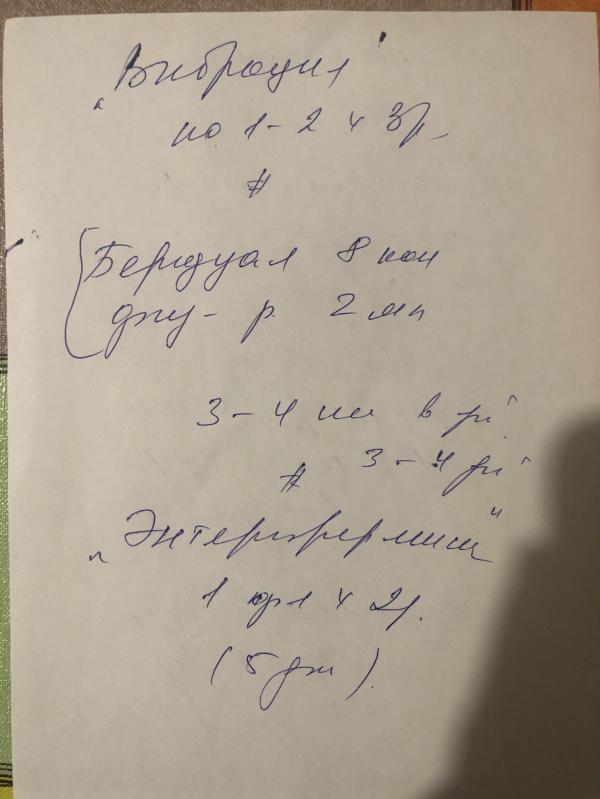 "Виброцил"
по 1-2 к 3 р
#
Беродуал 8 кап
физ - р 2 мл
3-4 в
# 3-4 дн
"Энтерофермин"
1 фл 2 р.
(5 дн).